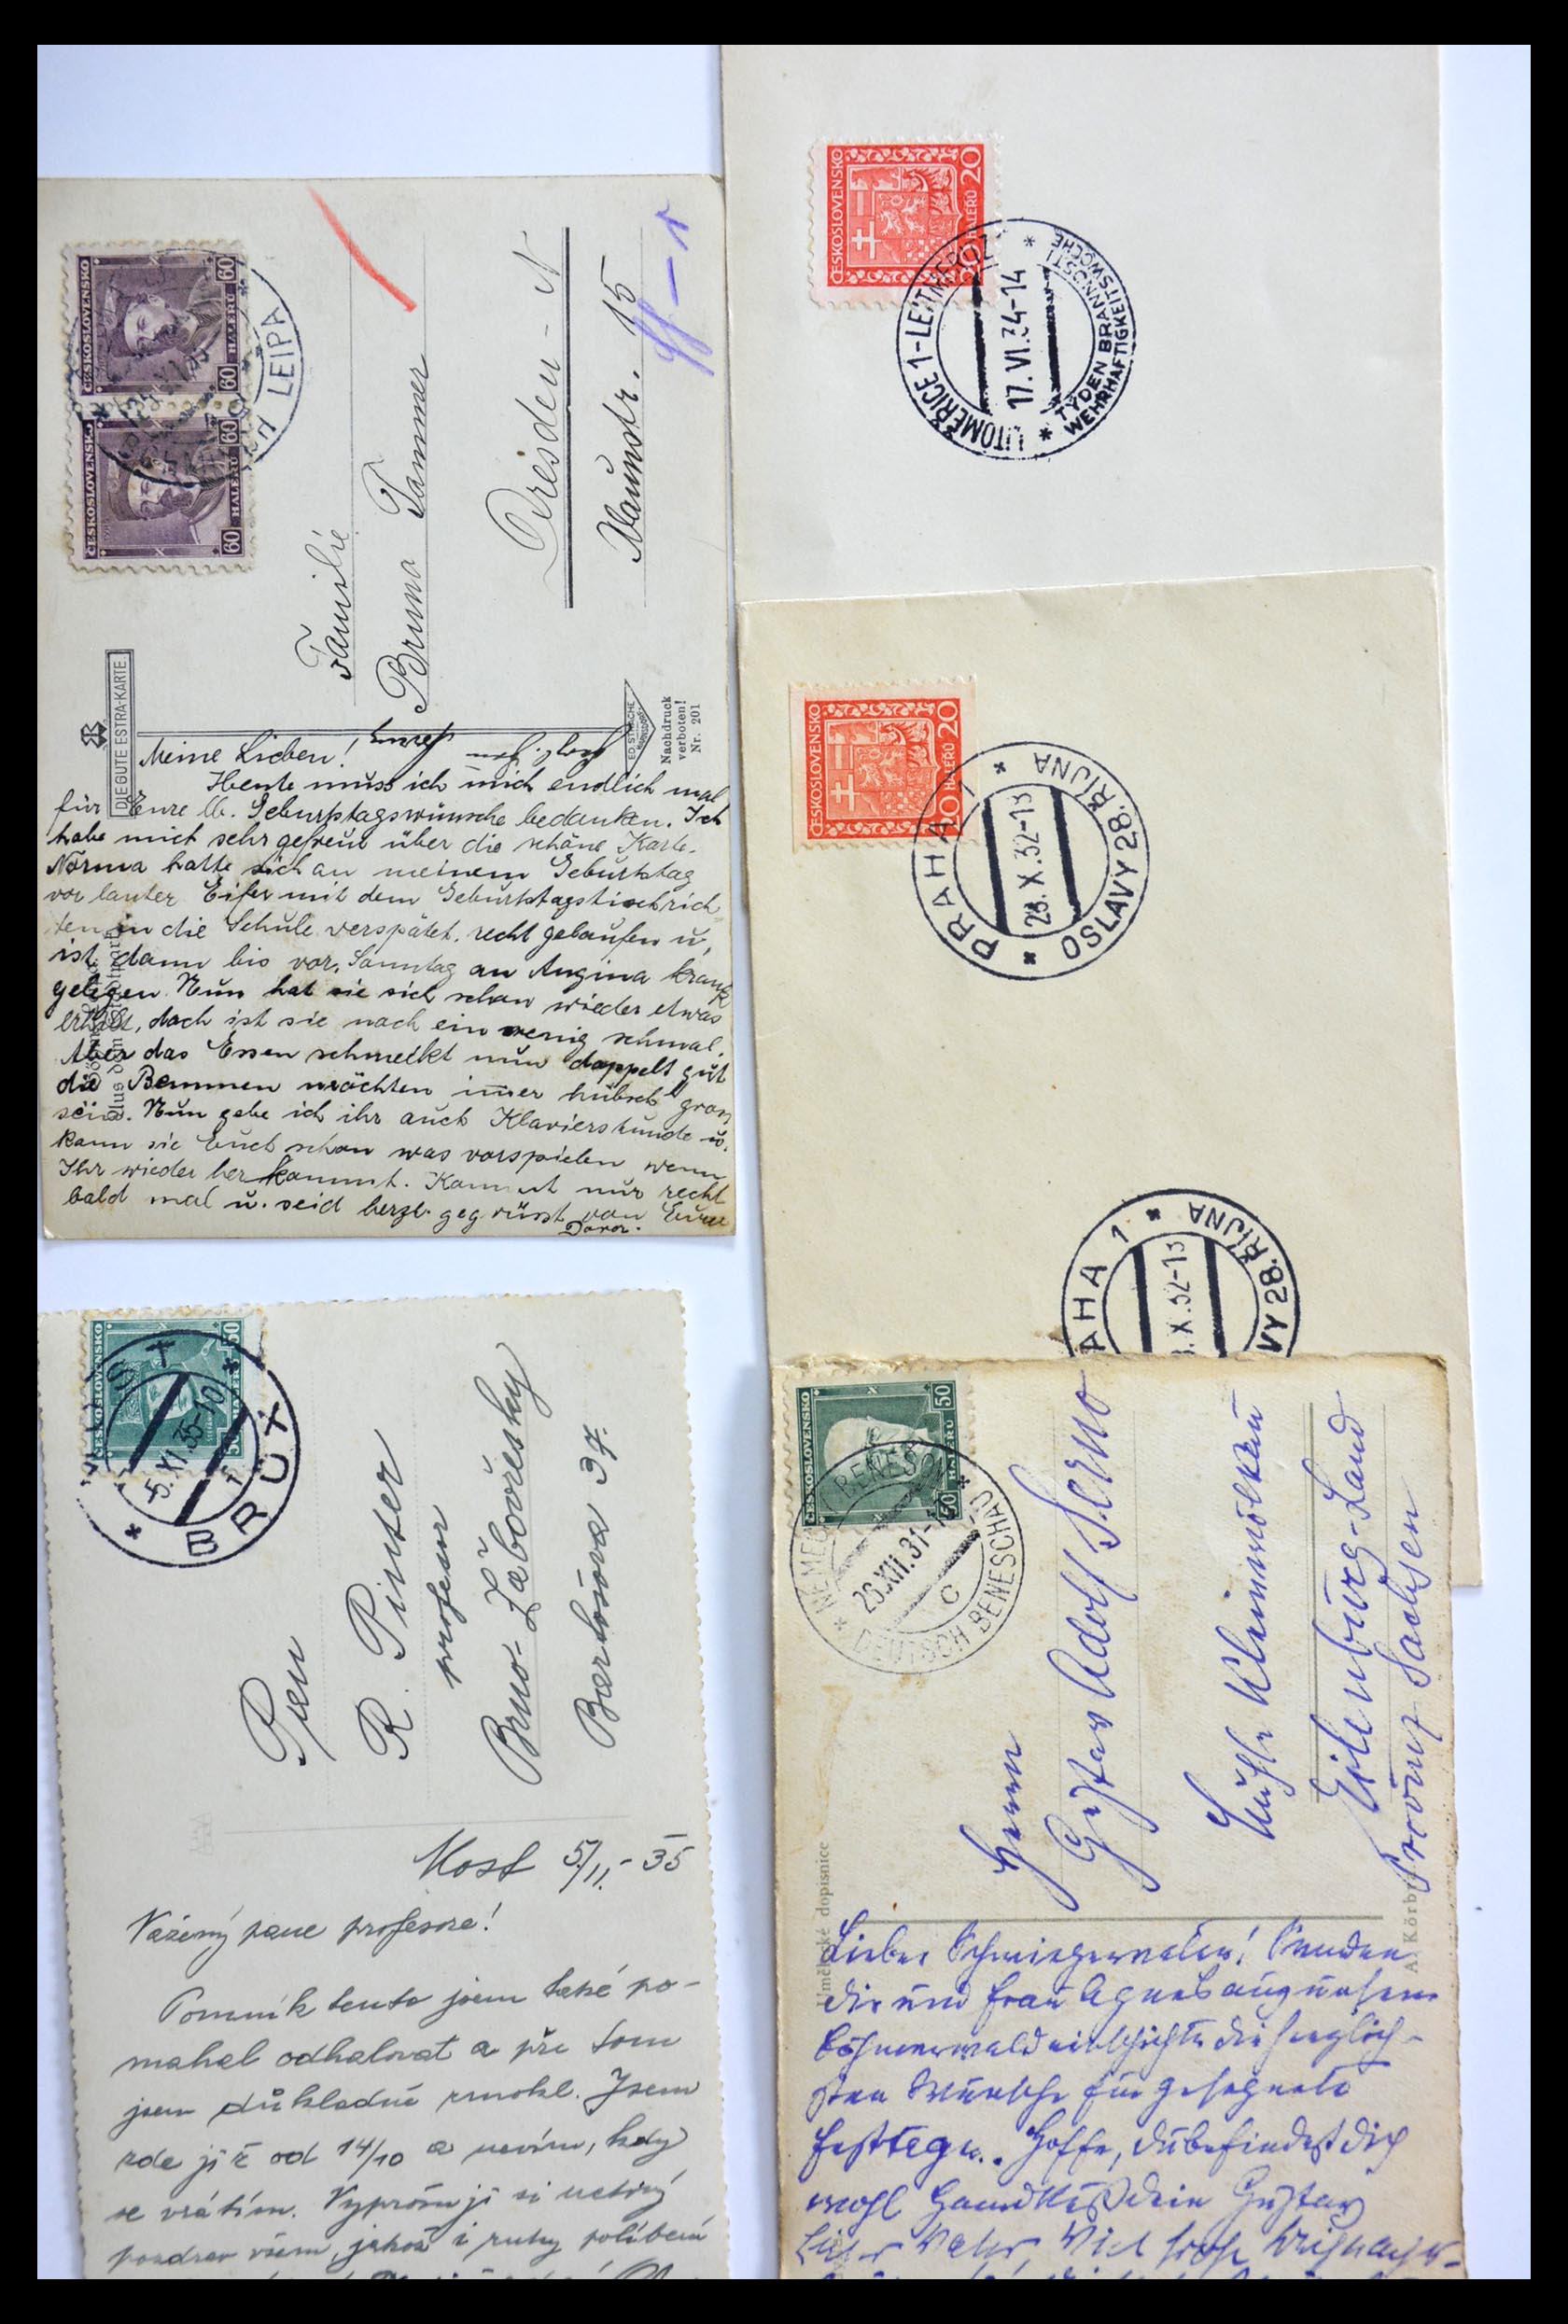 ČESKOSLOVENSKO
60 HALÉŘŮ 60
ČESKOSLOVENSKO
60 HALÉŘŮ 60
LEIPA
Familie
Bruna Tammer
Dresden - N
Alaunstr. 15
DIE GUTE ESTRA-KARTE
ED. STRACHE
Nachdruck
verboten!
Nr. 201
Meine Lieben!
Heute muss ich mich endlich mal
für Eure lb. Geburtstagswünsche bedanken. Ich
habe mich sehr gefreut über die schöne Karte.
Norma hatte sich an meinem Geburtstag
vor lauter Eifer mit dem Geburtstagstischrich
ten in die Schule verspätet, recht gelaufen u.
ist dann bis vor. Sonntag an Angina krank
gelegen. Nun hat sie sich schon wieder etwas
erholt, doch ist sie noch ein wenig schmal.
Aber das Essen schmeckt nun doppelt gut
die Bemmen möchten imer hübsch gross
sein. Nun gebe ich ihr auch Klavierstunde u.
kann sie Euch schon was vorspielen wenn
Ihr wieder her kommt. Kommt nur recht
bald mal u. seid herzl. gegrüsst von Eurer
ČESKOSLOVENSKO
20 HALÉŘŮ 20
LITOMĚŘICE 1 - LEITMERITZ 1
17. VI. 34-14
TÝDEN BRANNOSTI
WEHRHAFTIGKEITSWOCHE
ČESKOSLOVENSKO
20 HALÉŘŮ 20
PRAHA 1
28. X. 32-13
OSLAVY 28. ŘÍJNA
AHA 1
. X. 32-13
VY 28. ŘÍJNA
ČESKOSLOVENSKO
50 HALÉŘŮ 50
BRÜX
5. XI. 35-10
Pan
R. Pinter
profesor
Brno - Žabovřesky
Bartošova 37.
Most 5/11. - 35
Vážený pane profesore!
Pomník tento jsem také po-
mahal odhalovat a při tom
jsem důkladně zmokl. Jsem
zde již od 14/10 a nevím, kdy
se vrátím. Vyprošuji si uctivý
pozdrav všem, jakož i ruky políbení
ČESKOSLOVENSKO
50 HALÉŘŮ 50
NĚMECKÝ BENEŠOV
DEUTSCH BENESCHAU
C
Umělecké dopisnice
Herrn
Gustav Adolf Serno
Mühle Kleinwölkau
Eilenburg-Land
Provinz Sachsen
Lieber Schwiegervater! Senden
dir und Frau Agnes aus unserm
die herzlich-
sten Wünsche für gesegnete
Festtage. Hoffe, du befindest dich
wohl Gustav
Lieber Vater, Viel frohe Weihnachts-